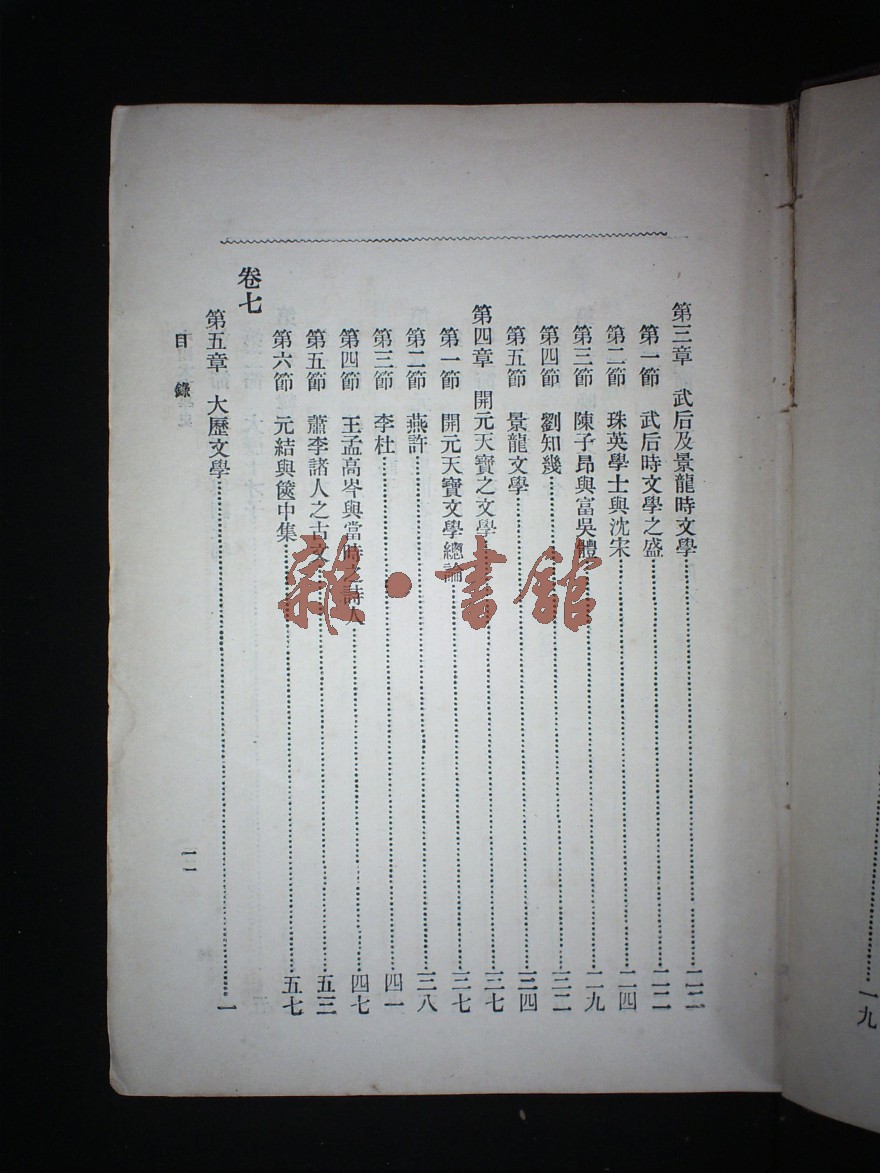 第三章 武后及景龍時文學……二二
第一節 武后時文學之盛……二二
第二節 珠英學士與沈宋……二四
第三節 陳子昂與富吳體……二九
第四節 劉知幾……三二
第五節 景龍文學……三四
第四章 開元天寶之文學……三七
第一節 開元天寶文學總論……三七
第二節 燕許……三八
第三節 李杜……四一
第四節 王孟高岑與當時之詩人……四七
第五節 蕭李諸人之古文……五三
第六節 元結與篋中集……五七
卷七
第五章 大歷文學……一
目錄
一一
一九
雜·書館